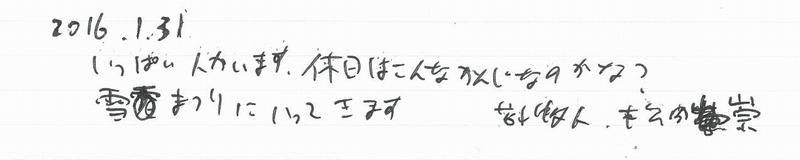 2016.1.31
いっぱい人がいます。休日はこんなかんじなのかな?
雪まつりにいってきます